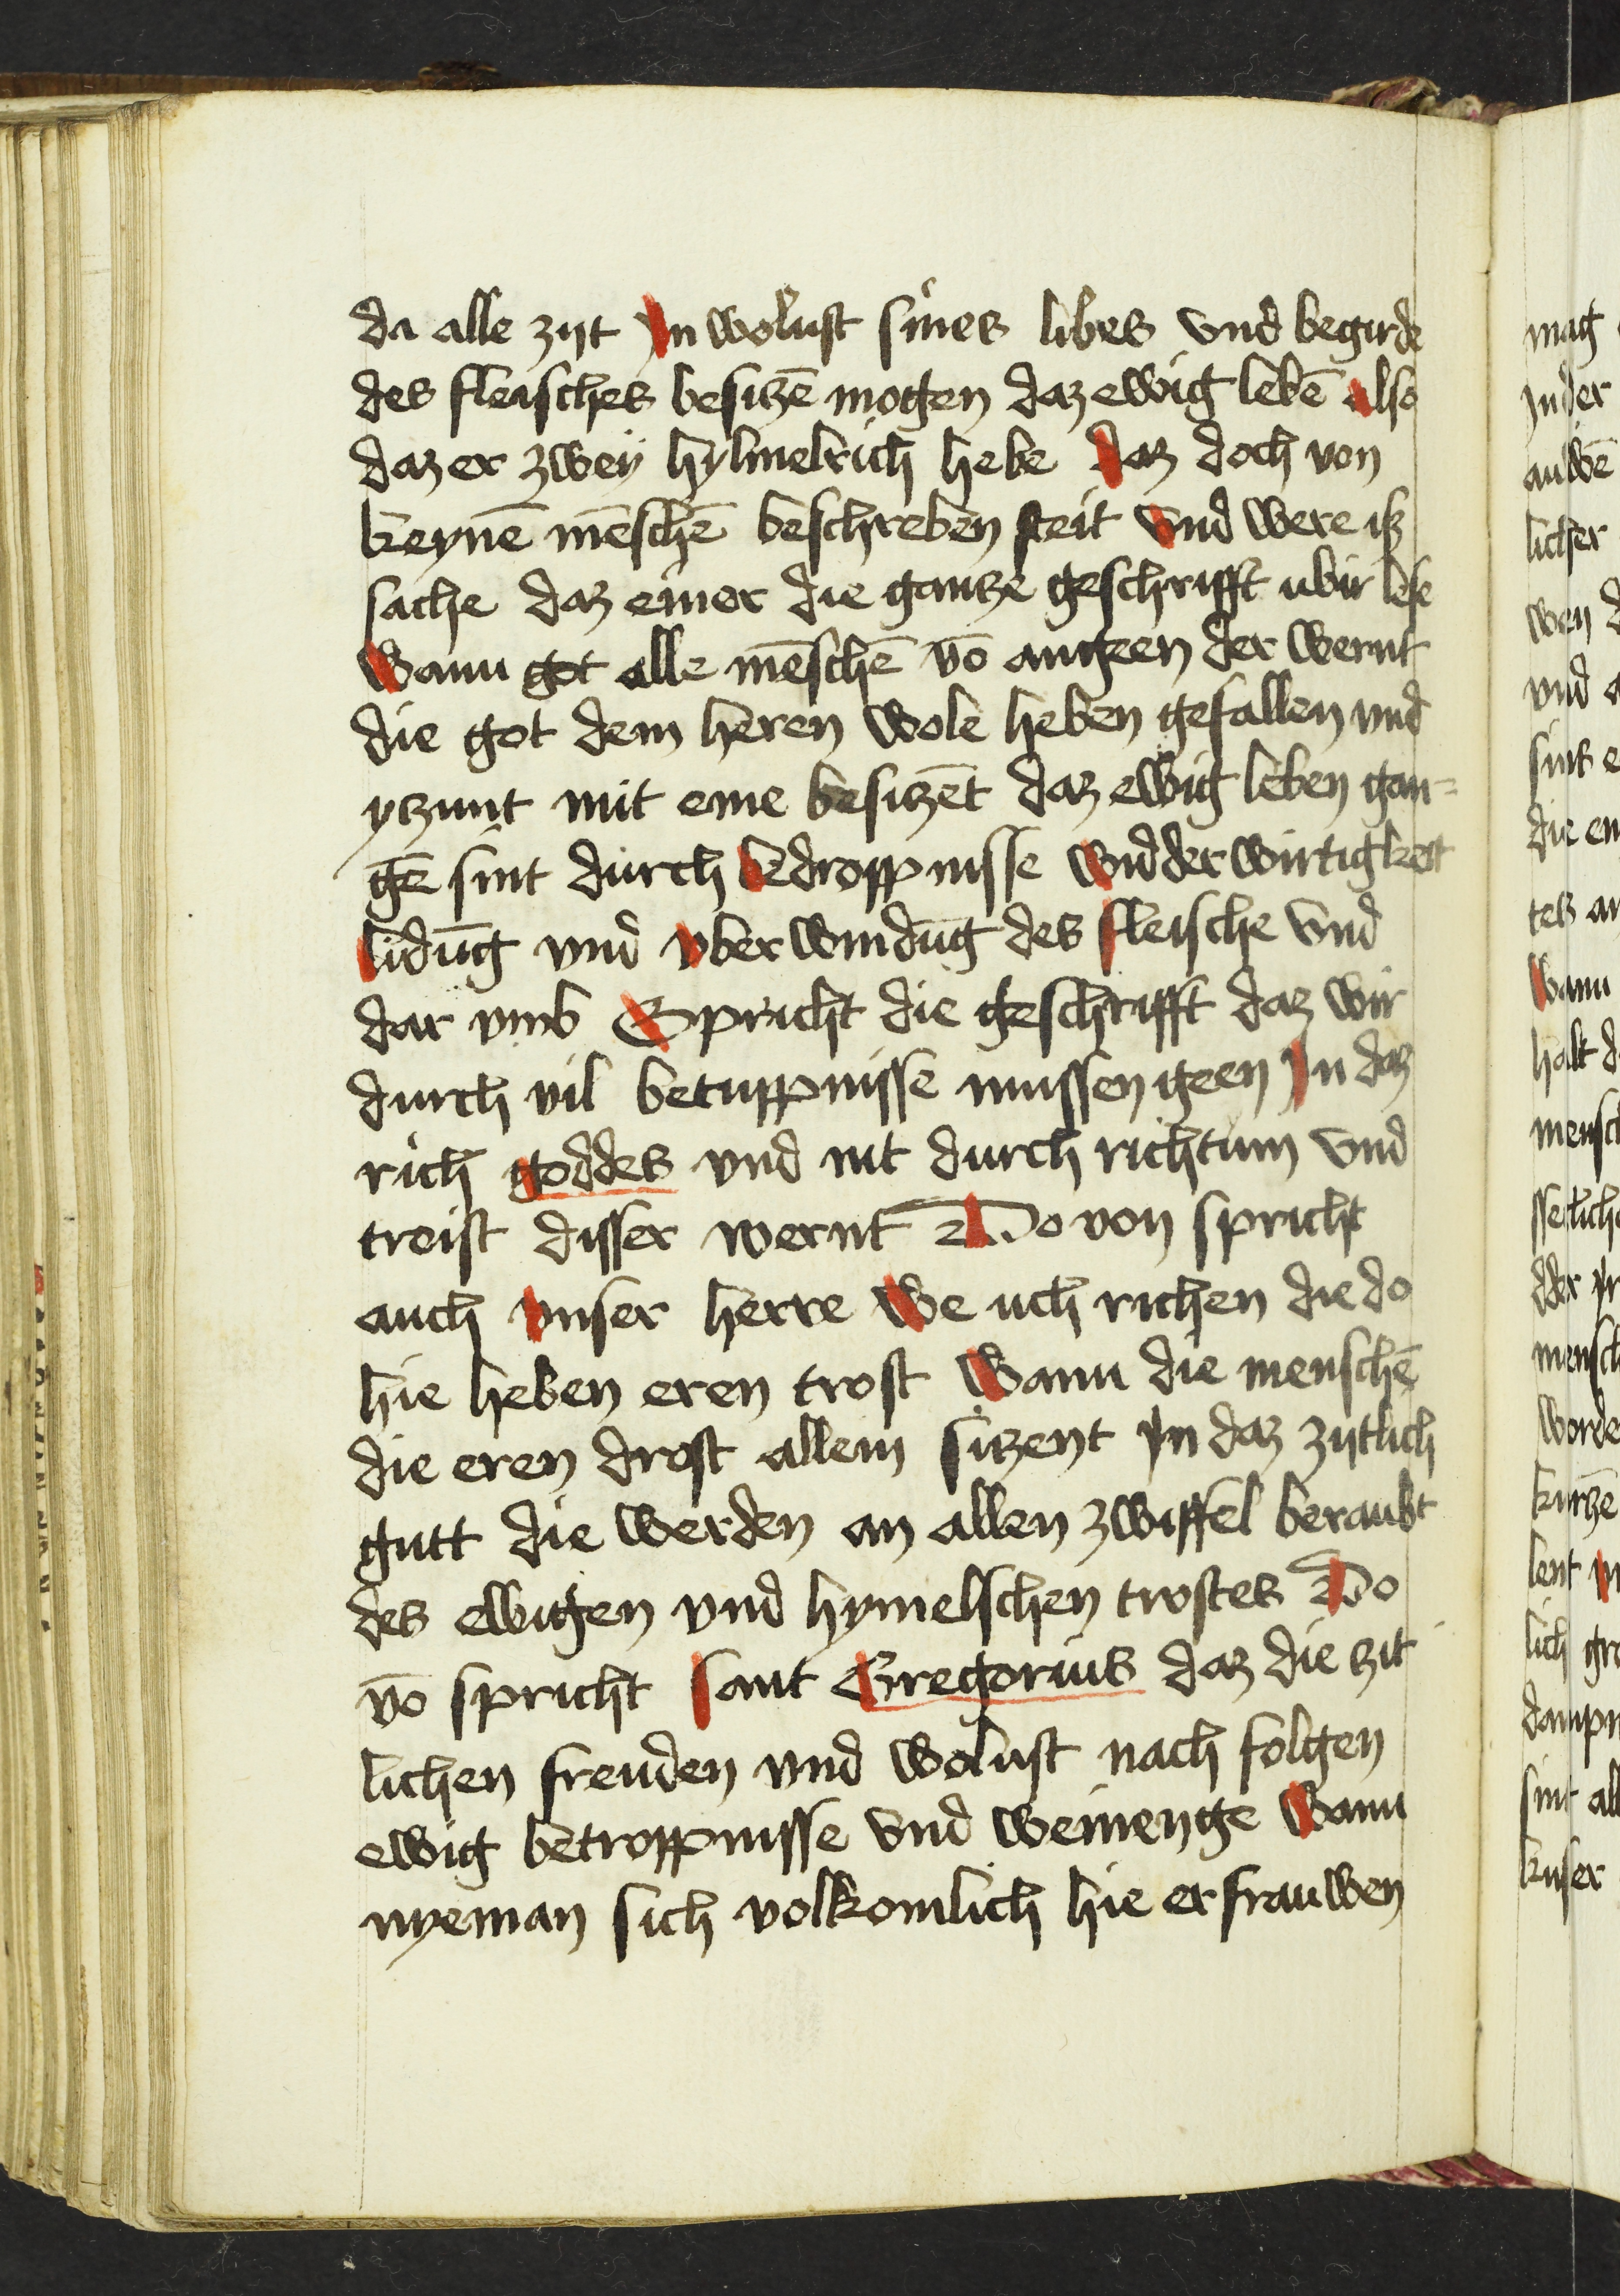 da alle zyt Jn wolust sines libes vnd begirde
des fleisches besitzē mogen daz ewig lebē also
daz er zwey hylmelrich hebe daz doch von
keynē mēschē beschreben steit vnd were iß
sache daz einer die gantze geschrifft ubir lese
Wann got alle mēschē vō angeen der wernt
die got dem heren wole heben gefallen vnd
ytzunt mit eme besitzēt daz ewig leben gan=
gē sint durch bedroppnisse widderwirtigkeit
lidūng vnd vberwindūng des fleische vnd
dar vmb Spricht die geschrifft daz wir
durch vil betuppnisse mussen geen Jn daz
rich goddes vnd nit durch richtum vnd
treist disser wernt Do von spricht
auch vnser herre We uch richen die do
hie heben eren trost Wann die menschē
die eren drost allein sitzent Jn daz zytlich
gutt die werden an allen zwiffel beraubt
des ewigen vnd hymelschen trostes Do
vō spricht sant Gregorius daz die zit
lichen freuden vnd wolust nach folgen
ewig betroppnisse vnd weinenge Wann
nyeman sich volkomlich hie erfrauwen
mag
Jn der
auwē
licher
wen d
vnd a
sint e
die em
tes an
Wann
halt d
mensch
dder
mensch
worde
kurtzē
lent
lich gro
sint all